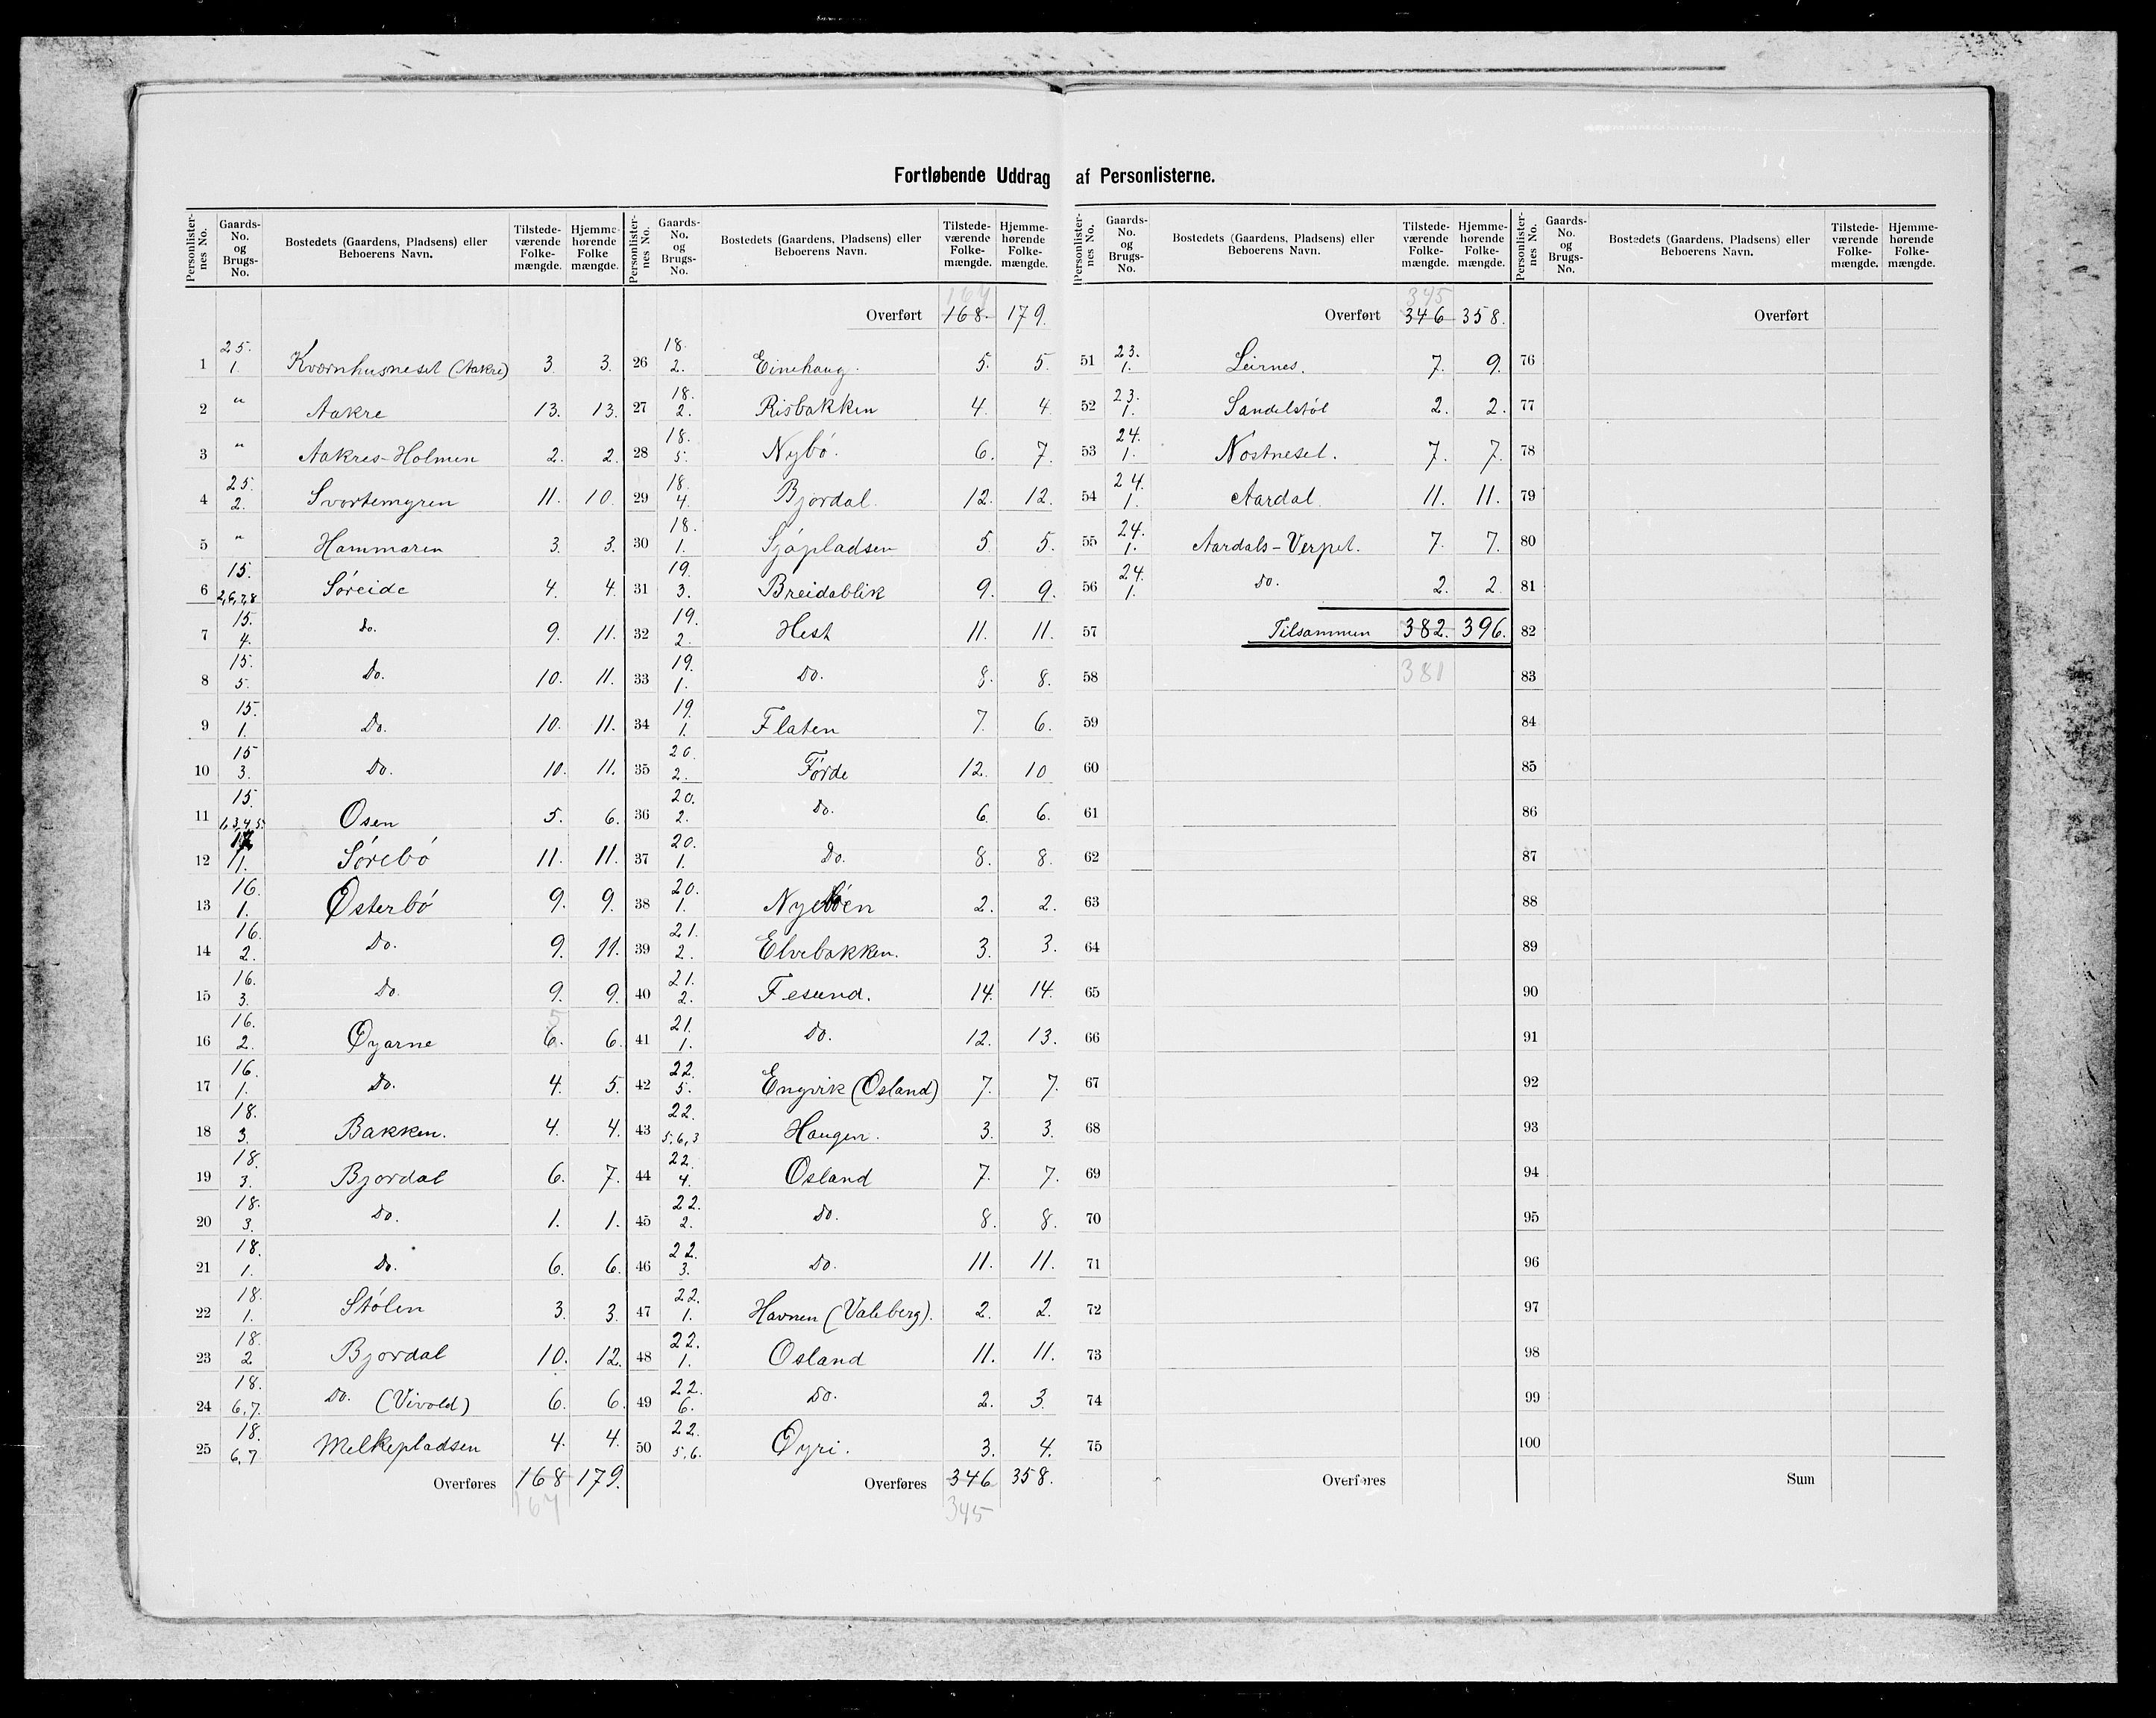 Fortløbende Uddrag af Personlisterne.
Personlisternes No. | Gaards-No. og Brugs-No. | Bostedets (Gaardens, Pladsens) eller Beboerens Navn. | Tilstedeværende Folkemængde. | Hjemmehørende Folkemængde.
1 | 25. 1. | Kvørnhusneset (Aakre) | 3. | 3.
2 | " | Aakre | 13. | 13.
3 | " | Aakres-Holmen | 2. | 2.
4 | 25. 2. | Svortemyren | 11. | 10.
5 | " | Hammaren | 3. | 3.
6 | 15. 2,6,7,8 | Søreide | 4. | 4.
7 | 15. 4. | Do. | 9. | 11.
8 | 15. 5. | Do. | 10. | 11.
9 | 15. 1. | Do. | 10. | 11.
10 | 15 3. | Do. | 10. | 11.
11 | 15. 1,3,4,5. | Osen | 5. | 6.
12 | 17. 1. | Sørebø | 11. | 11.
13 | 16. 1. | Østerbø | 9. | 9.
14 | 16. 2. | Do. | 9. | 11.
15 | 16. 3. | Do. | 9. | 9.
16 | 16. 2. | Øyarne | 6. 5 | 6.
17 | 16. 1. | Do. | 4. | 5.
18 | 18. 3. | Bakken. | 4. | 4.
19 | 18. 3. | Bjordal | 6. | 7.
20 | 18. 3. | Do. | 1. | 1.
21 | 18. 1. | Do. | 6. | 6.
22 | 18. 1. | Stølen | 3. | 3.
23 | 18. 2 | Bjordal | 10. | 12.
24 | 18. 6,7. | Do. (Vivold) | 6. | 6.
25 | 18. 6,7 | Melkepladsen | 4. | 4.
Overføres 168 179.
167
Personlisternes No. | Gaards-No. og Brugs-No. | Bostedets (Gaardens, Pladsens) eller Beboerens Navn. | Tilstedeværende Folkemængde. | Hjemmehørende Folkemængde.
167
Overført 168. 179.
26 | 18. 2. | Einehaug. | 5. | 5.
27 | 18. 2. | Risbakken | 4. | 4.
28 | 18. 5. | Nybø. | 6. | 7.
29 | 18. 4. | Bjordal. | 12. | 12.
30 | 18. 1. | Sjøpladsen | 5. | 5.
31 | 19. 3. | Breidablik | 9. | 9.
32 | 19. 2. | Hest | 11. | 11.
33 | 19. 1. | Do. | 8. | 8.
34 | 19. 1. | Flaten | 7. | 6.
35 | 20. 2. | Førde | 12. | 10
36 | 20. 2. | Do. | 6. | 6.
37 | 20. 1. | Do. | 8. | 8.
38 | 20. 1. | Nyebøen | 2. | 2.
39 | 21. 2. | Elvebakken. | 3. | 3.
40 | 21. 2. | Fesund. | 14. | 14.
41 | 21. 1. | Do. | 12. | 13.
42 | 22. 5. | Engvik (Osland) | 7. | 7.
43 | 22. 5,6,3 | Haugen. | 3. | 3.
44 | 22. 4. | Osland | 7. | 7.
45 | 22. 2. | Do. | 8. | 8.
46 | 22. 3. | Do. | 11. | 11.
47 | 22. 1. | Havnen (Valeberg). | 2. | 2.
48 | 22. 1. | Osland | 11. | 11.
49 | 22. 6. | Do. | 2. | 3.
50 | 22. 5,6. | Øyri. | 3. | 4.
Overføres 346 358.
345
Personlisternes No. | Gaards-No. og Brugs-No. | Bostedets (Gaardens, Pladsens) eller Beboerens Navn. | Tilstedeværende Folkemængde. | Hjemmehørende Folkemængde.
345
Overført 346 358.
51 | 23. 1. | Leirnes. | 7. | 9.
52 | 23. 1. | Sandelstøl | 2. | 2.
53 | 24. 1. | Nostneset. | 7. | 7.
54 | 24. 1. | Aardal. | 11. | 11.
55 | 24. 1. | Aardals-Verpet. | 7. | 7.
56 | 24. 1. | Do. | 2. | 2.
57 | Tilsammen | 382. | 396.
58 | 381
59
60
61
62
63
64
65
66
67
68
69
70
71
72
73
74
75
Overføres
Personlisternes No. | Gaards-No. og Brugs-No. | Bostedets (Gaardens, Pladsens) eller Beboerens Navn. | Tilstedeværende Folkemængde. | Hjemmehørende Folkemængde.
Overført
76
77
78
79
80
81
82
83
84
85
86
87
88
89
90
91
92
93
94
95
96
97
98
99
100
Sum